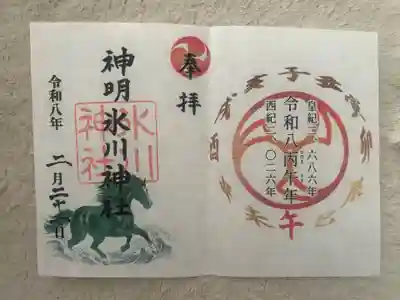 子
丑
寅
卯
辰
巳
午
未
申
酉
戌
亥
皇紀二、六八六年
令和八丙午年
西紀二、〇二六年
奉拝
神明氷川神社
氷川
神社
令和八年
二月